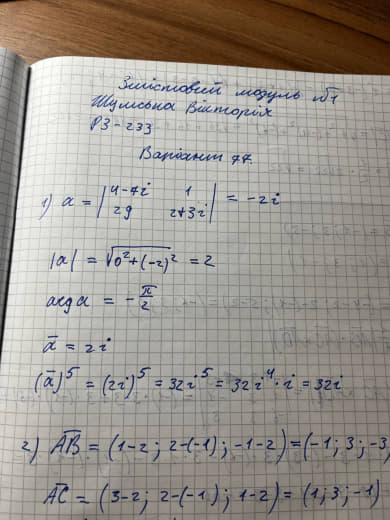 Змістовий модуль №1
Шумська Вікторія
РЗ-233
Варіант 77.
1) a = |4-7i 1| = -2i
|29 2+3i|
|a| = √0²+(-2)² = 2
arg a = -π/2
a̅ = 2i
(a̅)⁵ = (2i)⁵ = 32i⁵ = 32i⁴·i = 32i
2) A̅B̅ = (1-2; 2-(-1); -1-2) = (-1; 3; -3
A̅C̅ = (3-2; 2-(-1); 1-2) = (1; 3; -1)